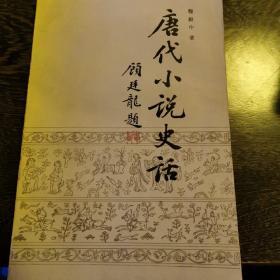 程毅中 著
唐代小说史话
顾廷龙题